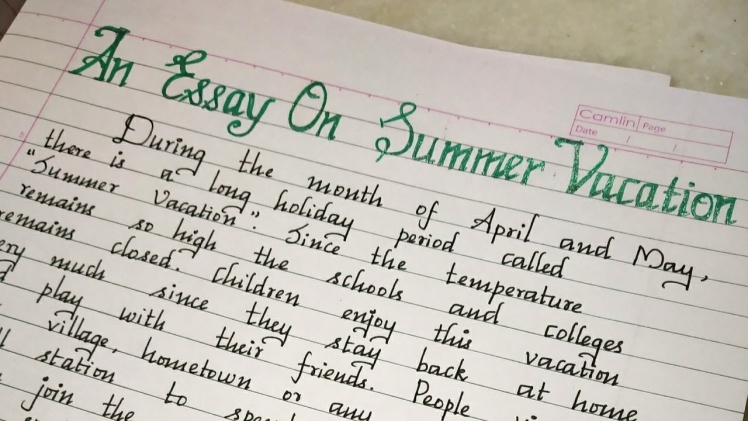 An Essay On Summer Vacation
Camlin Page
Date / /
During the month of April and May,
there is a long holiday period called
"Summer Vacation". Since the temperature
remains so high the schools and colleges
remains closed. Children enjoy this vacation
very much since they stay back at home
play with their friends. People
village, hometown or any
station to
join the